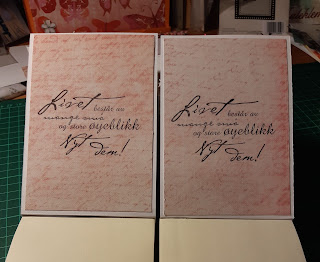 Livet består av
mange små
og store øyeblikk
Nyt dem!
Livet består av
mange små
og store øyeblikk
Nyt dem!